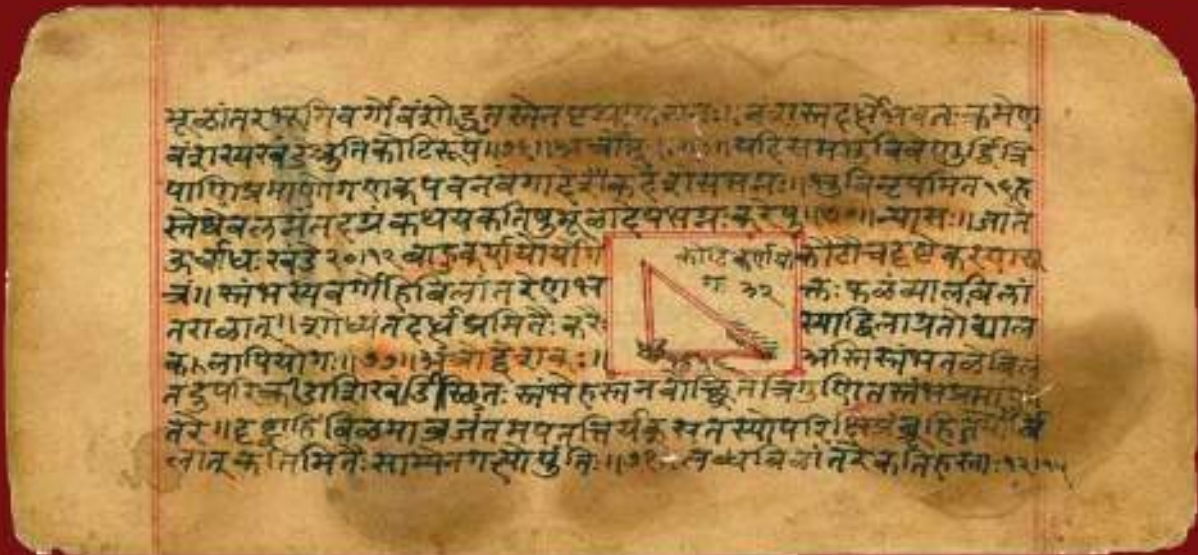 भूळांतरभूमिवर्गोवंशोद्धृतस्तेनपृथग्युतोनः॥वंशस्तदर्धेभवतःक्रमेण
वंशस्यखंडेश्रुतिकोटिरूपे॥७६॥ यदिसमभुविवेणुर्द्वित्रि
पाणिप्रमाणोगणकपवनवेगादेकदेशेसभग्नः॥भुविनृपमित१६ह
स्तेष्वेवलग्नंतदग्रंकथयकतिषुमूळादेषभग्नःकरेषु॥७७॥न्यासः॥जाते
ऊर्ध्वाधःखंडे२०।१२बाहुकर्णयोर्योगे कोटौचदृष्टेकरणसू
कोटिकर्णयो
ग ३२
त्रं॥स्तंभस्यवर्गोहिबिलांतरेणभ क्तःफळंव्यालबिलां
तराळात्॥शोध्यंतदर्धप्रमितैःकरैः स्याद्बिलाग्रतोव्याल
कलापियोगः॥७७॥अत्रोद्देशकः॥ अस्तिस्तंभतळेबिलं
तदुपरिक्रीडाशिखंडीस्थितःस्तंभेहस्तनवोच्छ्रितेत्रिगुणितस्तंभप्रमाणां
तरे॥दृष्ट्वाहिंबिळमाव्रजंतमपतत्तिर्यक्सतस्योपरिक्षिप्रंब्रूहितयोर्बि
लात्कतिमितैःसाम्येनगत्योर्युतिः॥७८॥लब्धबिलांतरेकतिहस्ताः१२।१५